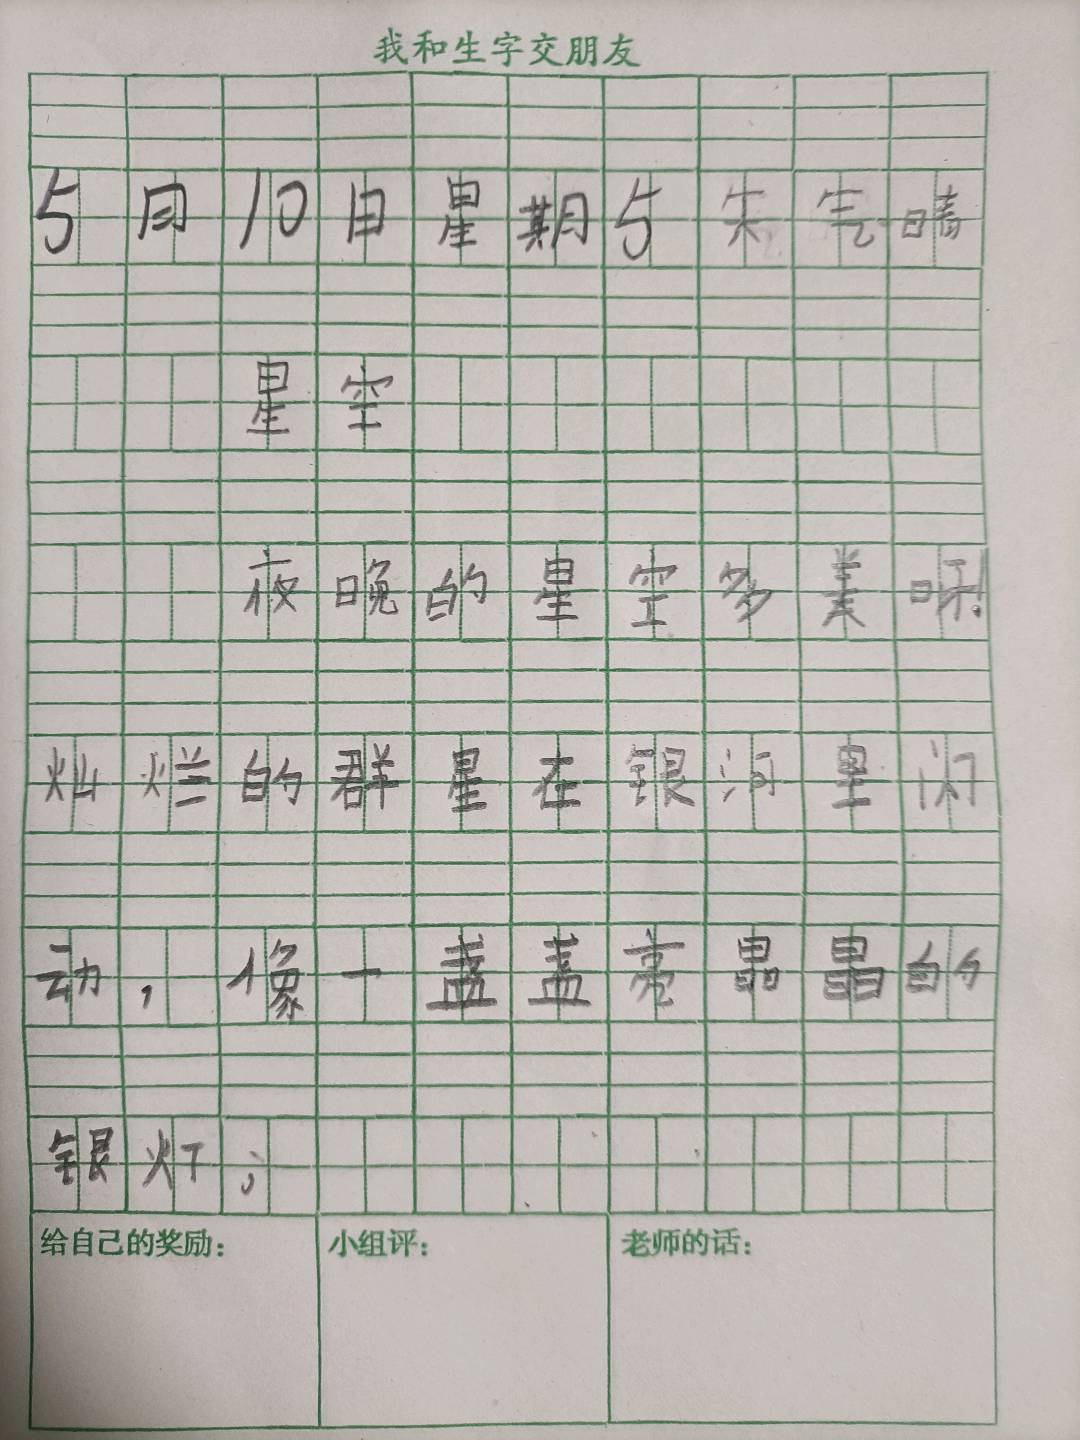 我和生字交朋友
5月10日星期5天气晴
星空
夜晚的星空多美呀!
灿烂的群星在银河里闪
动,像一盏盏亮晶晶的
银灯;
给自己的奖励: 小组评: 老师的话: